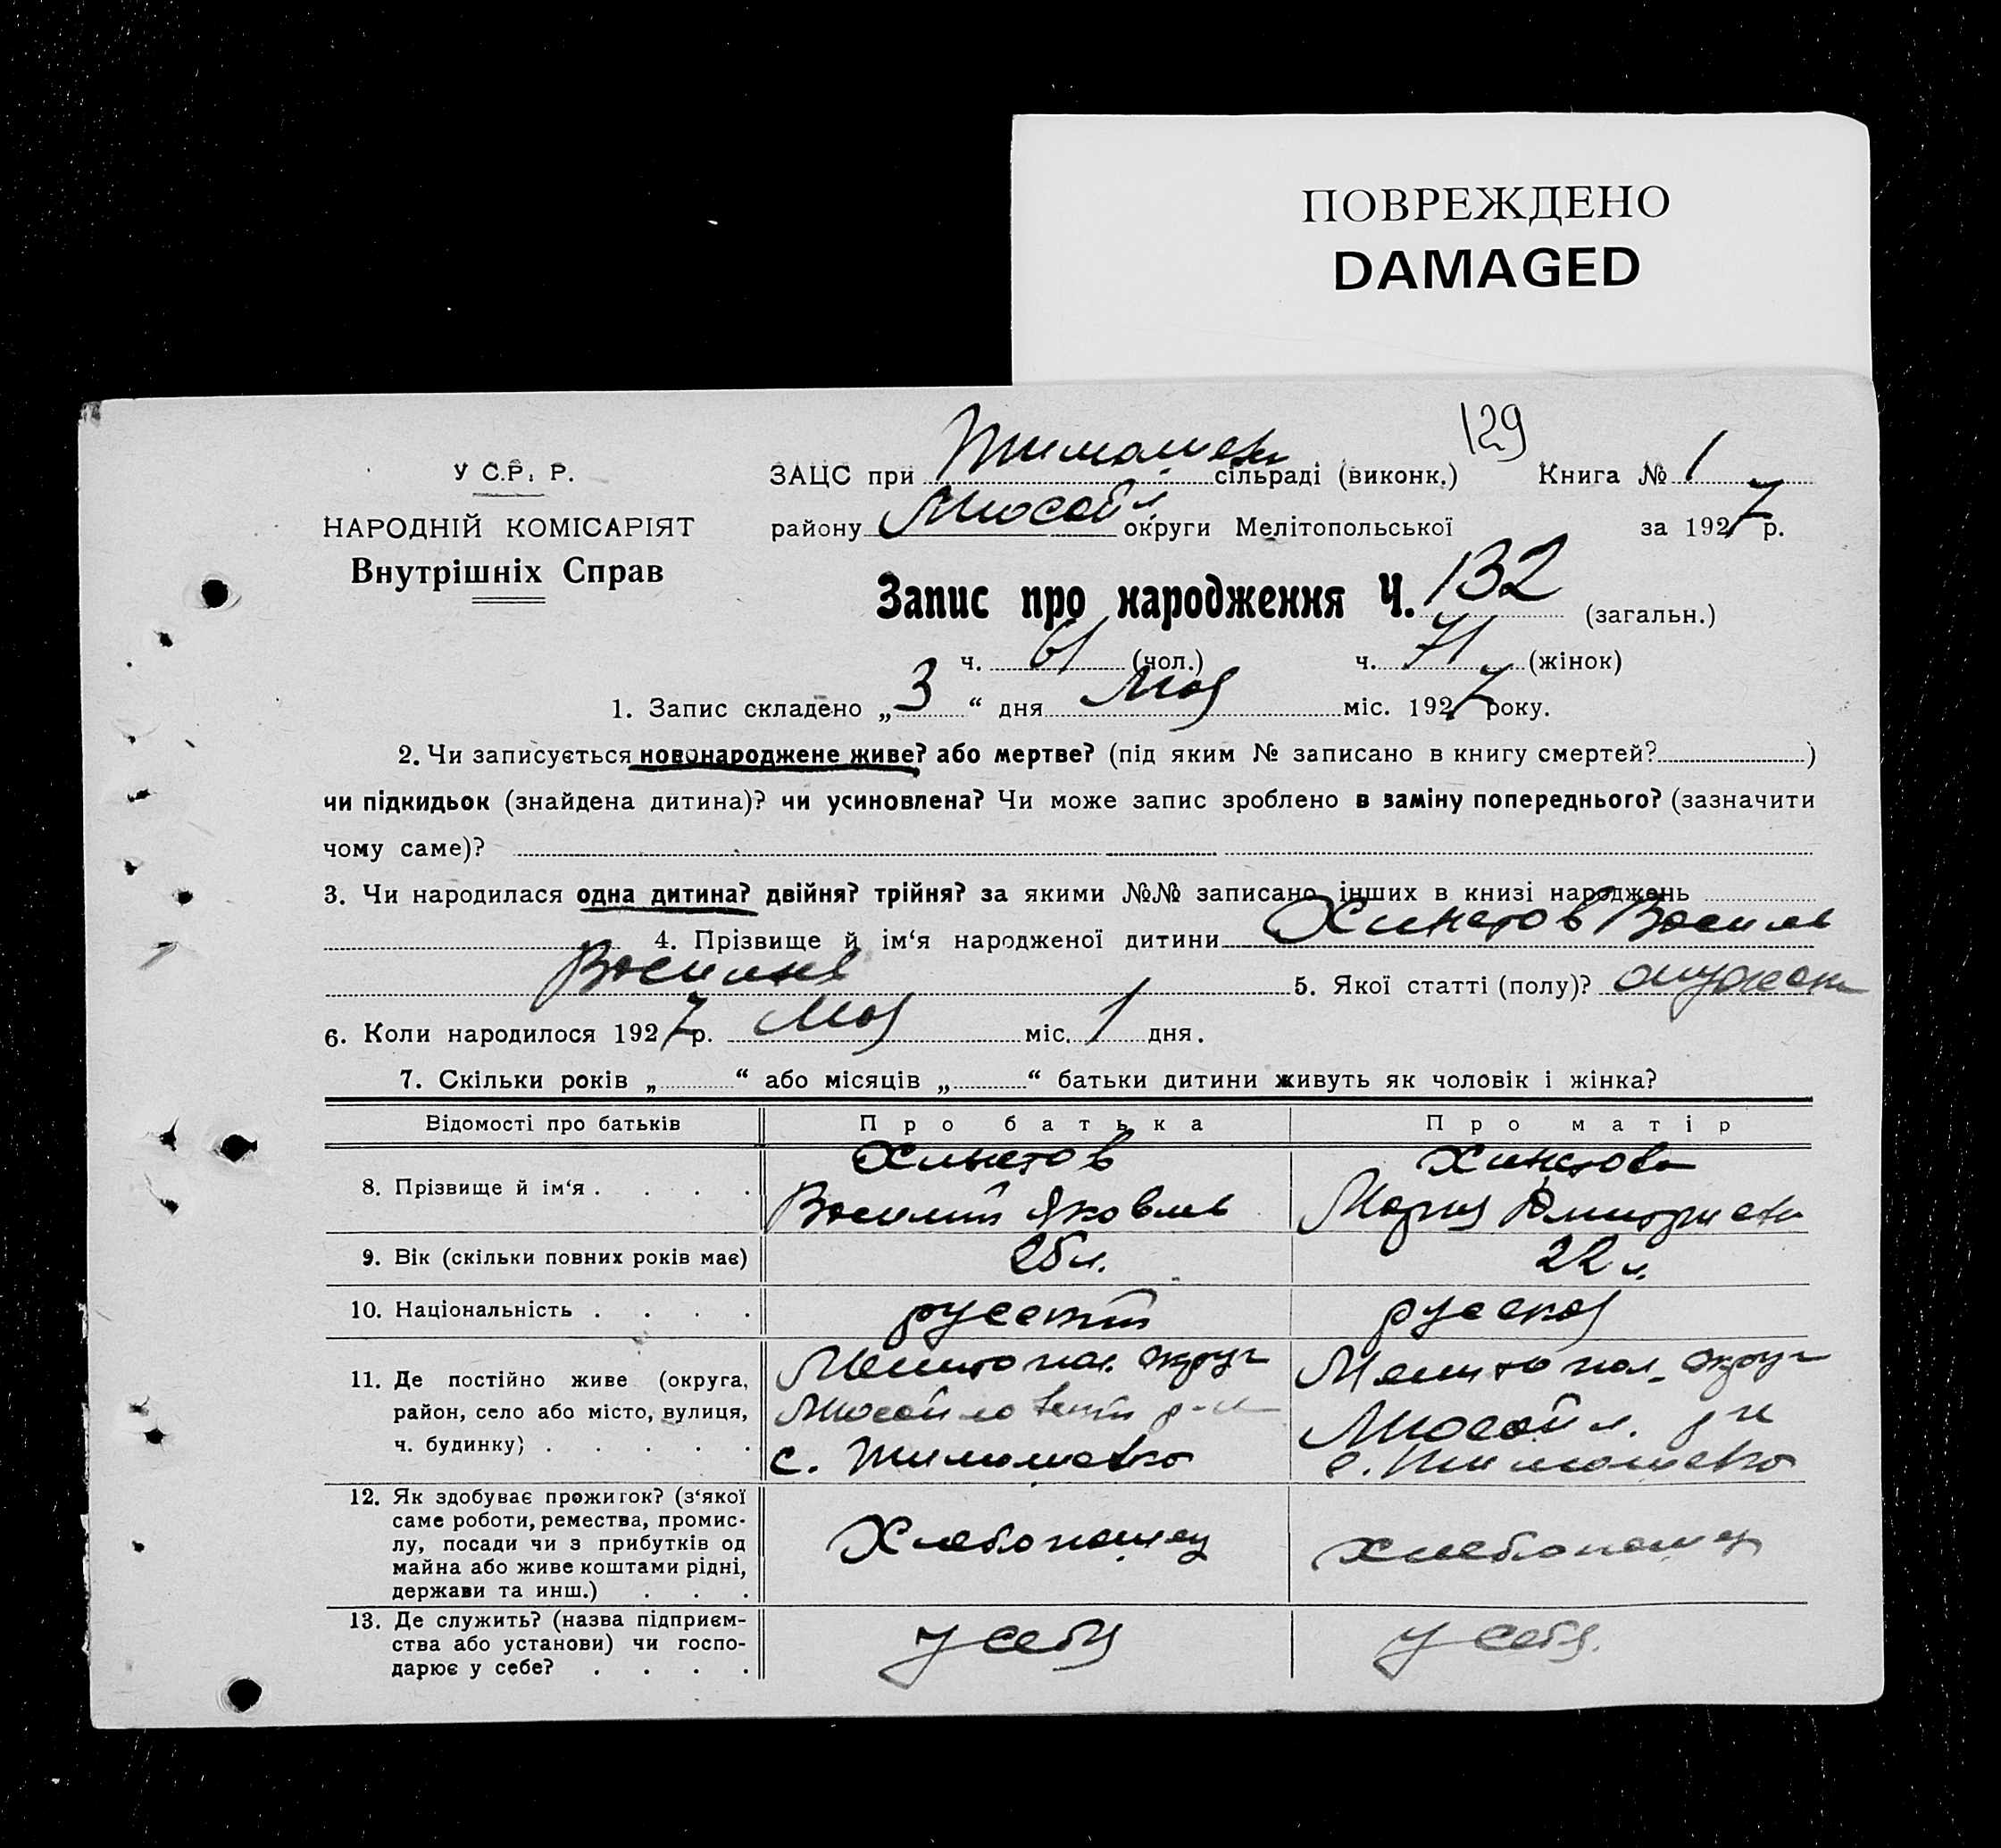 ПОВРЕЖДЕНО
DAMAGED
129
У С.Р. Р.
НАРОДНІЙ КОМІСАРІЯТ
Внутрішніх Справ
ЗАЦС при Тимошевк сільраді (виконк.) Книга № 1
району округи Мелітопольської за 1927 р.
Запис про народження Ч. 132 (загальн.)
ч. 61 (чол.) ч. 71 (жінок)
1. Запис складено „ 3 “ дня Мая міс. 1927 року.
2. Чи записується новонароджене живе? або мертве? (під яким № записано в книгу смертей? )
чи підкидьок (знайдена дитина)? чи усиновлена? Чи може запис зроблено в заміну попереднього? (зазначити
чому саме)?
3. Чи народилася одна дитина? двійня? трійня? за якими №№ записано інших в книзі народжень
4. Прізвище й ім‘я народженої дитини Василь
5. Якої статті (полу)?
6. Коли народилося 1927 р. Мая міс. 1 дня.
7. Скільки років „ “ або місяців „ “ батьки дитини живуть як чоловік і жінка?
Відомості про батьків Про батька Про матір
8. Прізвище й ім‘я . . . .
Василий Яковлев Мария Дмитриевн
9. Вік (скільки повних років має) 25 л. 22 л.
10. Національність . . . . русский русская
11. Де постійно живе (округа,
район, село або місто, вулиця,
ч. будинку) . . . . .
Мелитопол. округ Мелитопол. округ
р-н р-н
с. Тимошевка с. Тимошевка
12. Як здобуває прожиток? (з‘якої
саме роботи, ремества, промис-
лу, посади чи з прибутків од
майна або живе коштами рідні,
держави та инш.) . . .
Хлебопашец хлебопашец
13. Де служить? (назва підприєм-
ства або установи) чи госпо-
дарює у себе? . . . .
у себя у себя.